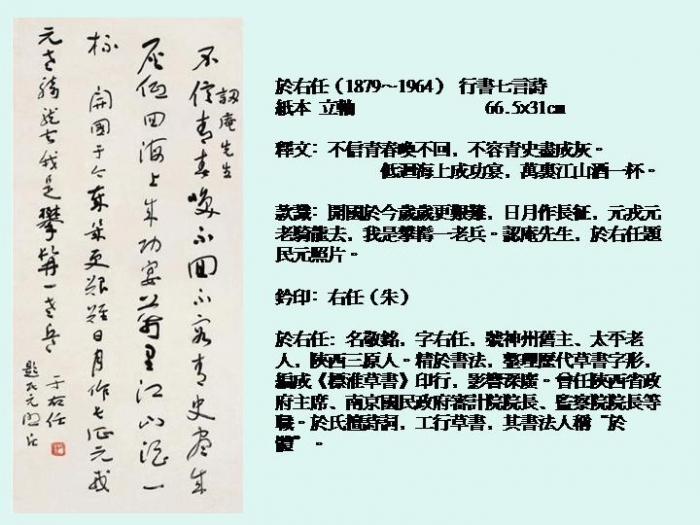 訒庵先生
不信青春喚不回不容青史盡成
灰低回海上成功宴萬里江山酒一
杯 開國于今歲歲更艱難日月作長征元戎
元老騎龍去我是攀髯一老兵
于右任
題民元照片
於右任（1879～1964） 行書七言詩
紙本 立軸 66.5x31cm
釋文：不信青春喚不回，不容青史盡成灰。
低迴海上成功宴，萬裏江山酒一杯。
款識：開國於今歲歲更艱難，日月作長征，元戎元
老騎龍去，我是攀髯一老兵。認庵先生，於右任題
民元照片。
鈐印：右任（朱）
於右任：名敬銘，字右任，號神州舊主、太平老
人，陝西三原人。精於書法，整理歷代草書字形，
編成《標准草書》印行，影響深廣。曾任陝西省政
府主席、南京國民政府審計院院長、監察院院長等
職。於氏擅詩詞，工行草書，其書法人稱“於
體”。